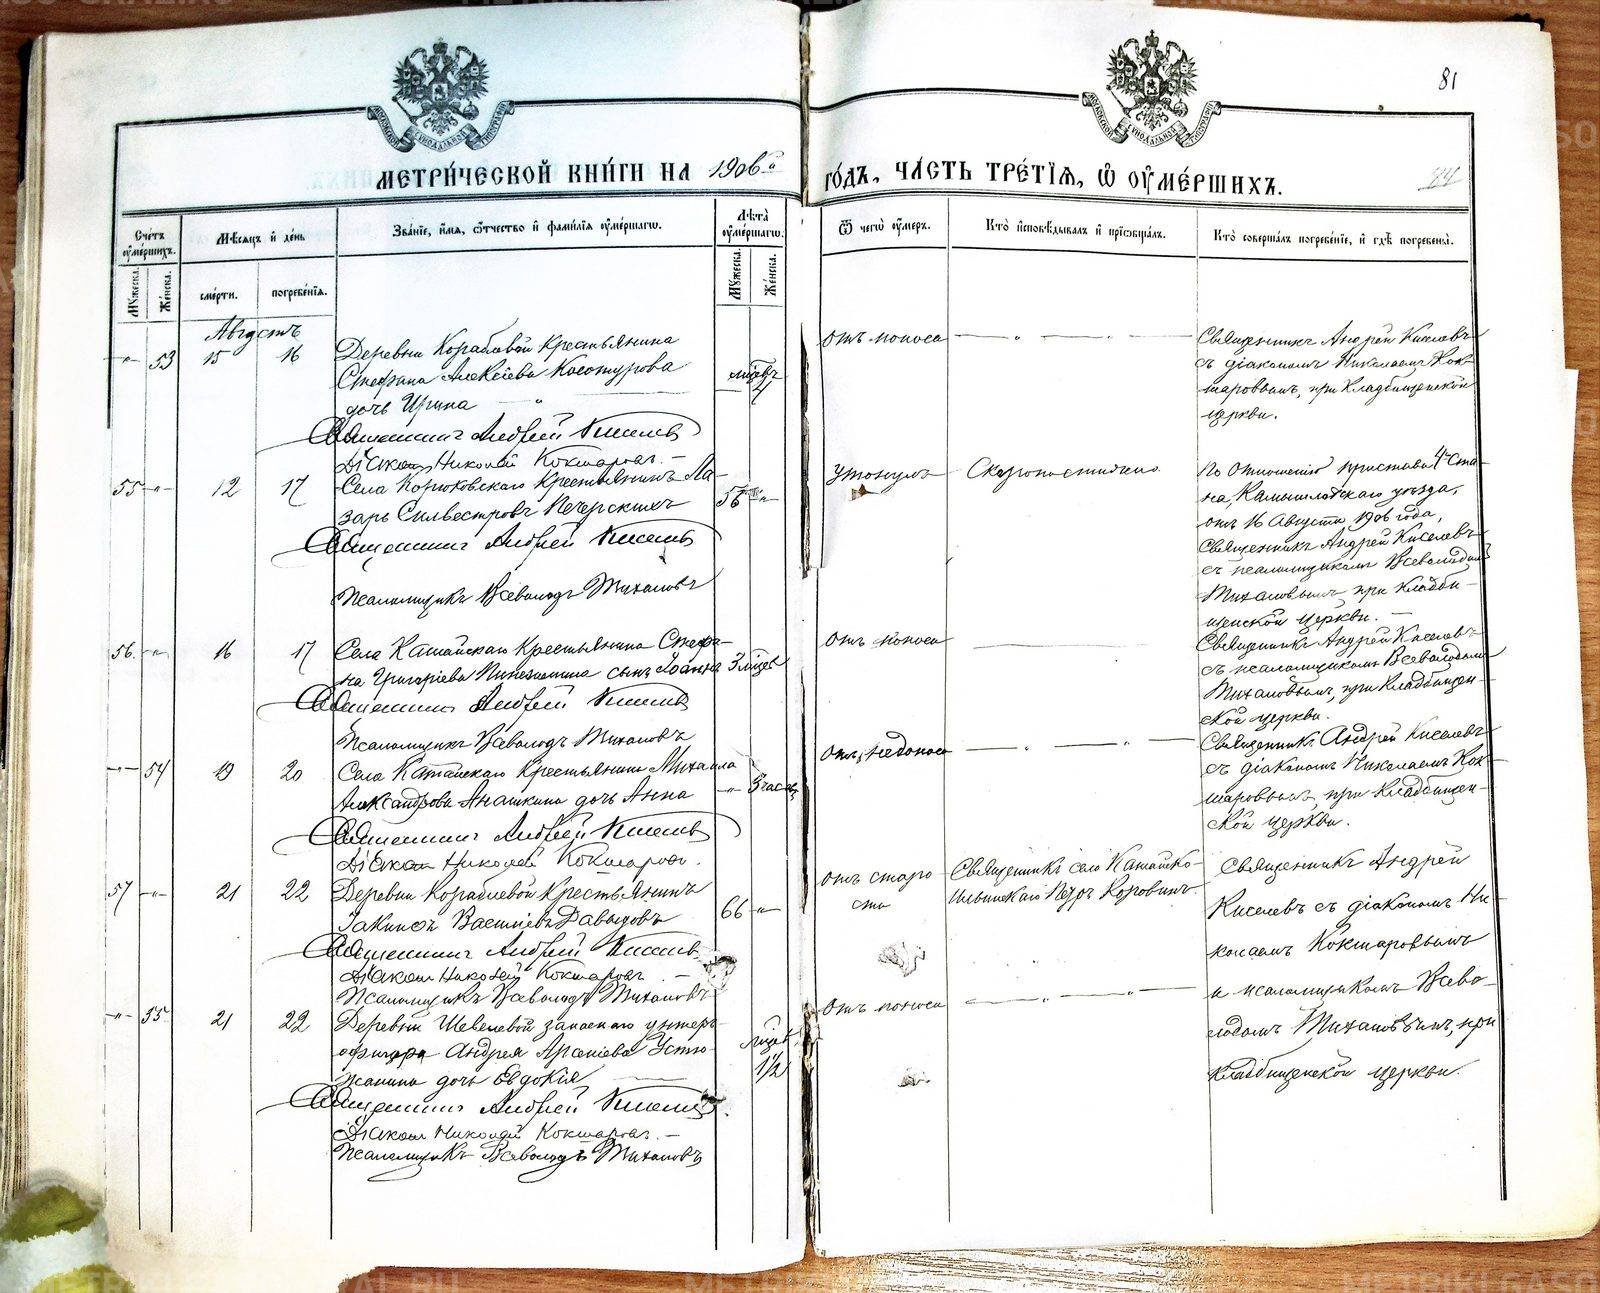 81
84
МОСКОВСКОЙ СѴНОДАЛЬНОЙ ТИПОГРАФІИ
МОСКОВСКОЙ СѴНОДАЛЬНОЙ ТИПОГРАФІИ
МЕТРИ́ЧЕСКОЙ КНИ́ГИ НА 1906й
ГО́ДЪ, ЧА́СТЬ ТРЕ́ТІѦ, Ѽ ОУМЕ́РШИХЪ.
Сче́тъ оуме́ршихъ.
Мꙋ́жеска.
Же́нска.
Мѣ́сяцъ и҆ де́нь
сме́рти.
погребе́нїя.
Зва́нїе, и҆́мя, ѻ҆́тчество и҆ фами́лїя оуме́ршагѡ.
Лѣ́та̀ оуме́ршагѡ.
Мꙋ́жеска.
Же́нска.
Ѿ чегѡ̀ оу́меръ.
Кто̀ и҆сповѣ́дывалъ и҆ прїѡбща́лъ.
Кто̀ соверша́лъ погребе́нїе, и҆ гдѣ̀ погребены̀.
Августъ
-"- 53 15 16 Деревни Кораблевой крестьянина
Стефана Алексіева Косотурова
дочь Ирина - " -
Священникъ Андрей Киселевъ
Діаконъ Николай Кокшаровъ. -
отъ поноса
Священникъ Андрей Киселевъ
съ діакономъ Николаемъ Кок-
шаровымъ, при кладбищенской
церкви.
55 -"- 12 17 Села Корюковскаго крестьянинъ Ла-
зарь Силвестровъ Печерскихъ
56 -"-
Священникъ Андрей Киселевъ
Псаломщикъ Всеволодъ Тихановъ
утонулъ
Скоропостижно
По отношенію пристава 4 ста-
на, Камышловскаго уѣзда,
отъ 16 Августа 1906 года,
Священникъ Андрей Киселевъ
съ псаломщикомъ Всеволодомъ
Тихановымъ при кладби-
щенской церкви.
56. -"- 16 17 Села Катайскаго крестьянина Стефа-
на Григоріева сынъ Іоаннъ 3 мѣсяц
Священникъ Андрей Киселевъ
Псаломщикъ Всеволодъ Тихановъ
отъ поноса
Священникъ Андрей Киселевъ
съ псаломщикомъ Всеволодомъ
Тихановымъ, при кладбищен-
ской церкви.
-"- 54 19 20 Села Катайскаго крестьянина Михаила
Александрова Анашкина дочь Анна
-"-
Священникъ Андрей Киселевъ
Діаконъ Николай Кокшаровъ.
отъ недоноса
Священникъ Андрей Киселевъ
съ діакономъ Николаемъ Кок-
шаровымъ, при кладбищен-
ской церкви.
57 -"- 21 22 Деревни Кораблевой крестьянинъ
Іакинѳъ Васильевъ Давыдовъ
66 -"-
Священникъ Андрей Киселевъ
Діаконъ Николай Кокшаровъ. -
Псаломщикъ Всеволодъ Тихановъ
отъ старо-
сти
Священникъ села Катайско-
Ильинскаго Петръ Коровинъ
Священникъ Андрей
Киселевъ съ діакономъ Ни-
колаемъ Кокшаровымъ
и псаломщикомъ Всево-
лодомъ Тихановымъ, при
кладбищенской церкви.
-"- 55 21 22 Деревни Шевелевой запаснаго унтеръ-
офицера Андрея Арсеніева Устю-
жанина дочь Евдокія
1½
Священникъ Андрей Киселевъ
Діаконъ Николай Кокшаровъ. -
Псаломщикъ Всеволодъ Тихановъ
отъ поноса